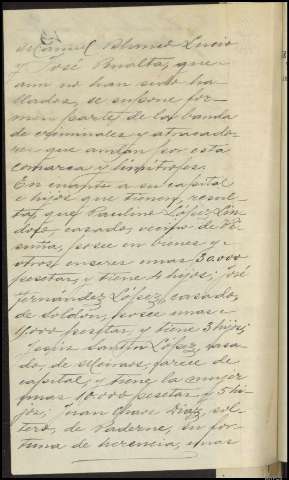 Manuel Blanco Lucio
y José Peralta, que
aun no han sido ha-
llados, se supone for-
men parte de la banda
de criminales y atracado-
res que andan por esta
comarca y limítrofes.
En cuanto a su capital
e hijos que tienen, resul-
ta, que Paulino López
casado, vecino de
posee en bienes y
otros enseres unas 30.000
pesetas, y tiene 4 hijos; José
Fernández López, casado,
de Soldón, posee unas
9,000 pesetas, y tiene 3 hijos;
López, casa-
do, de carece de
capital, y tiene la mujer
unas 10.000 pesetas y 5 hi-
jos; Juan Díaz, sol-
tero, de Paderne, su for-
tuna de herencia, unas